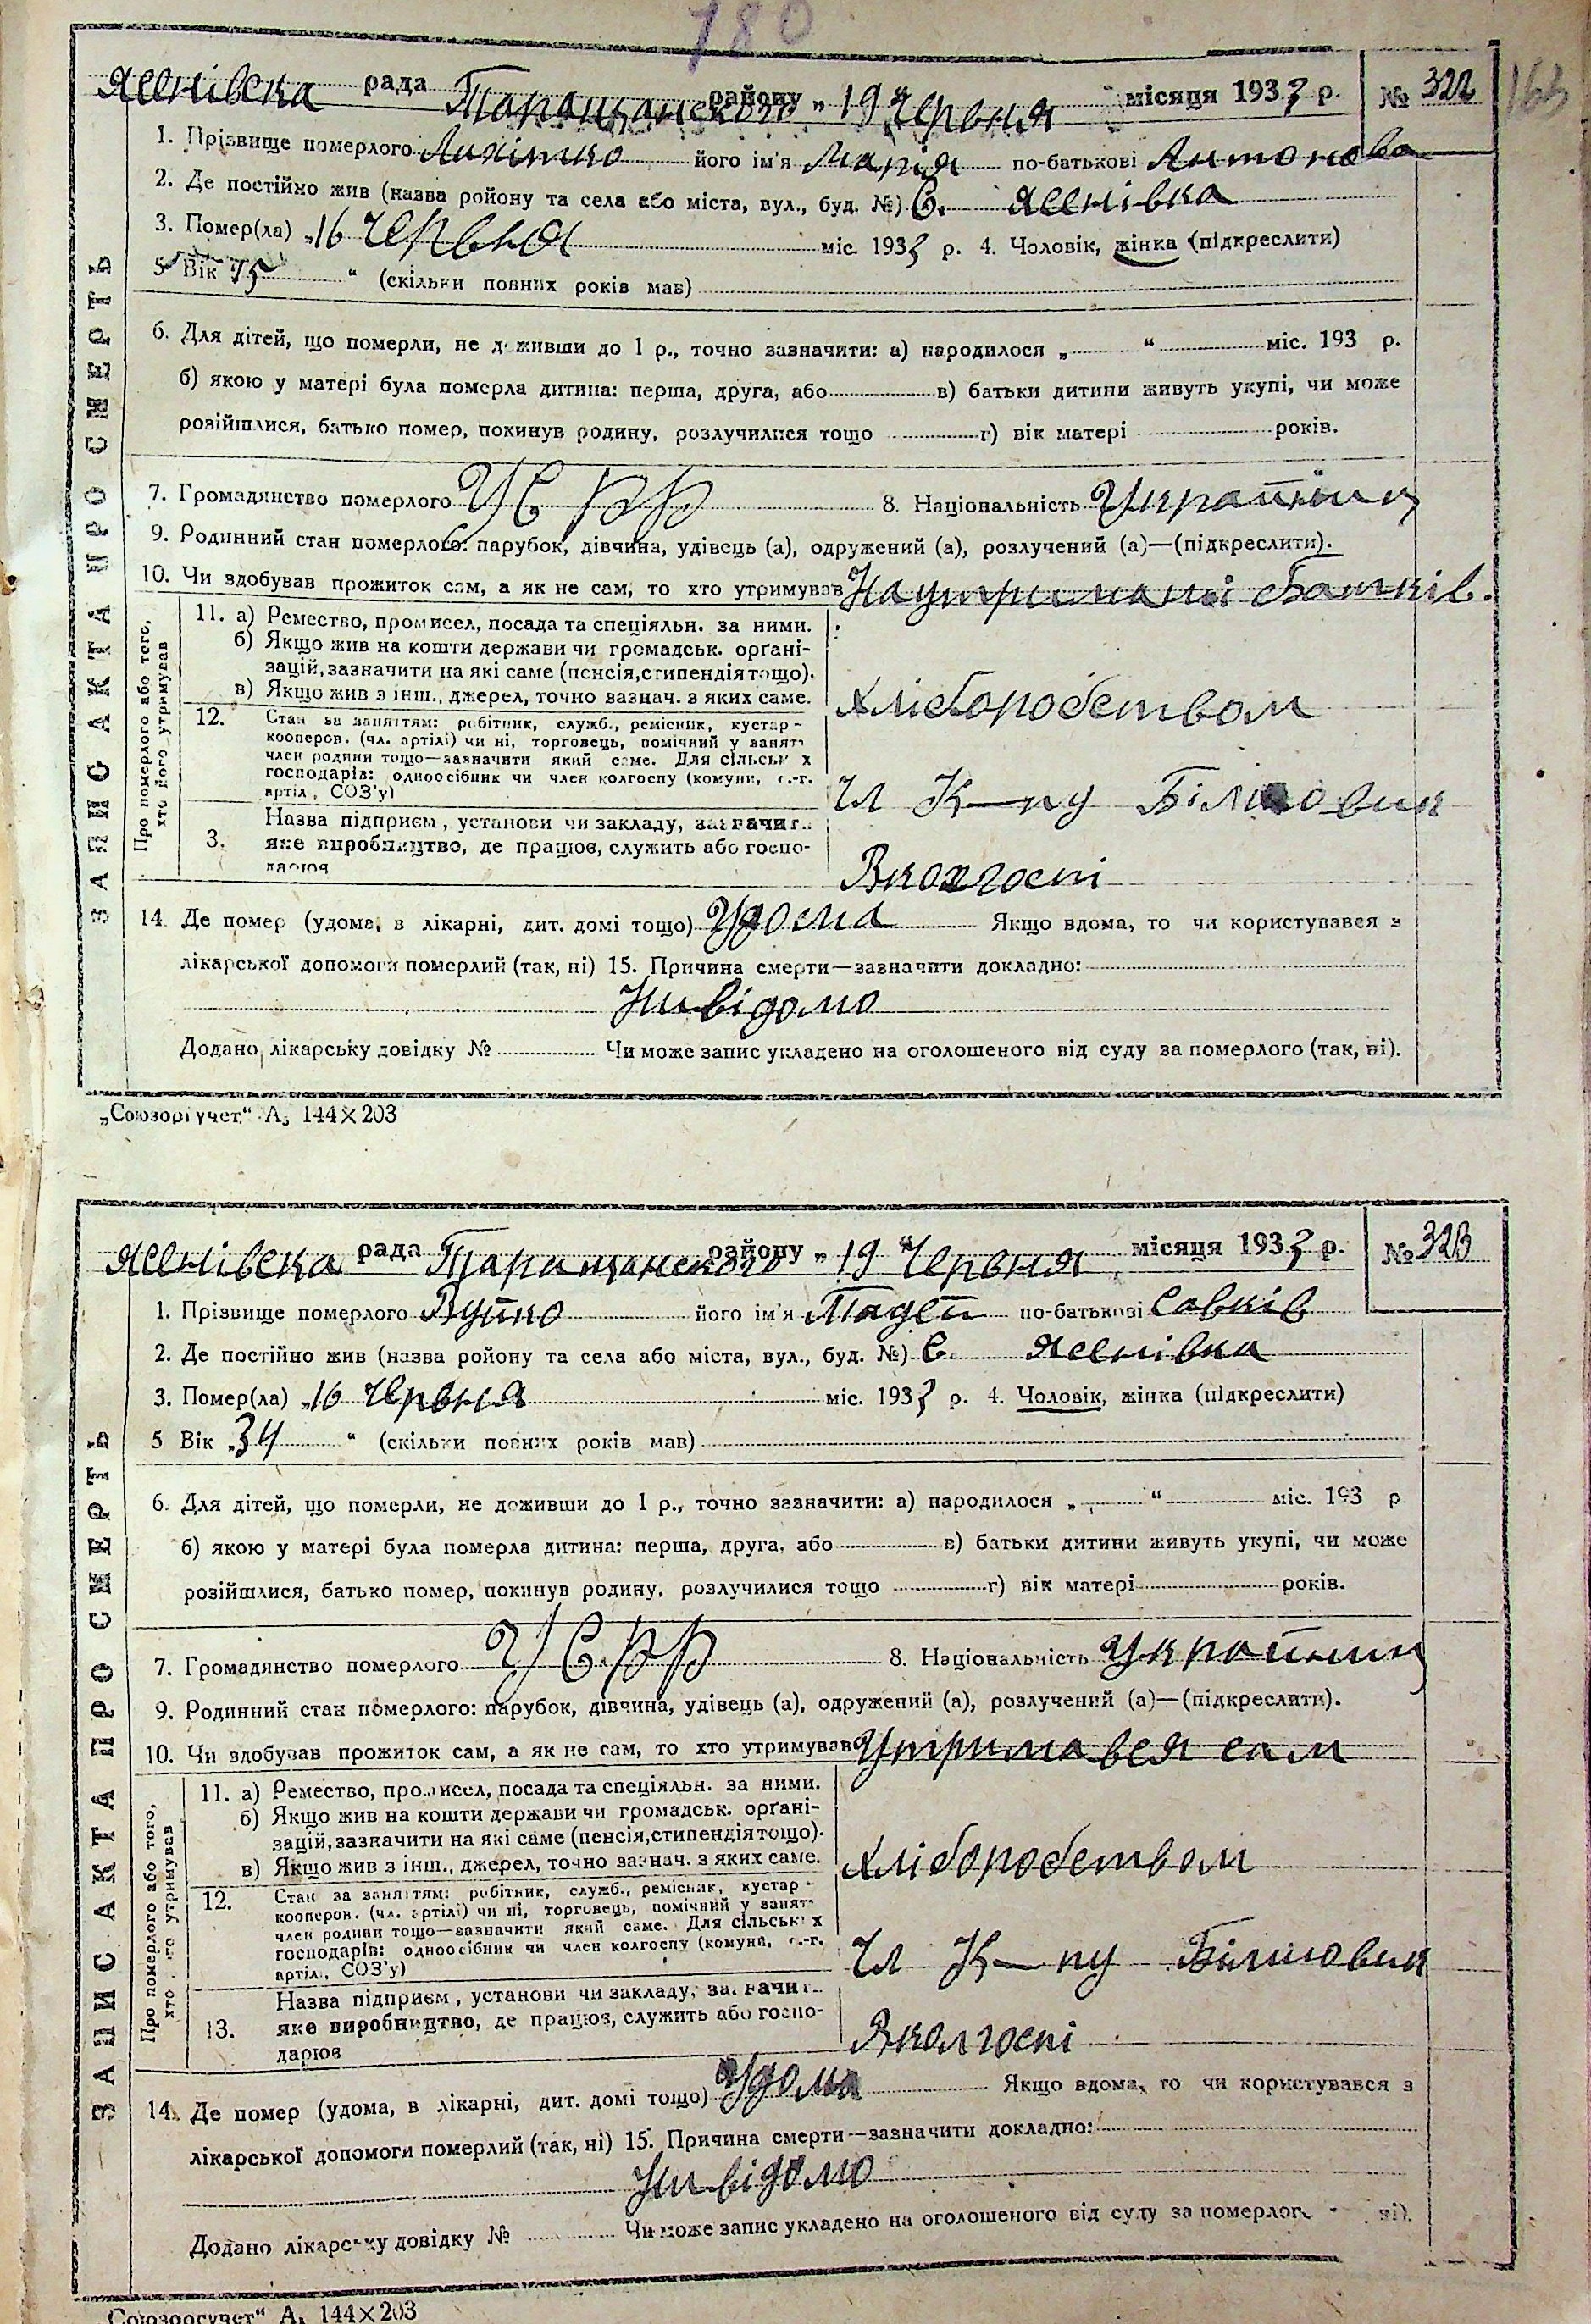 180
163
Ясенівска рада Таращанского району „ 19 “ Червня місяця 1933 р. № 322
1. Прізвище померлого його ім'я Марія по-батькові Антонова
2. Де постійно жив (назва ройону та села або міста, вул., буд. №) С. Ясенівка
3. Помер(ла) „16 Червня міс. 1933 р. 4. Чоловік, жінка (підкреслити)
5 Вік 15 “ (скільки повних років мав)
6. Для дітей, що померли, не доживши до 1 р., точно зазначити: а) народилося „ “ міс. 193 р.
б) якою у матері була померла дитина: перша, друга, або в) батьки дитини живуть укупі, чи може
розійшлися, батько помер, покинув родину, розлучилися тощо г) вік матері років.
7. Громадянство померлого УСРР 8. Національність Українц
9. Родинний стан померлого: парубок, дівчина, удівець (а), одружений (а), розлучений (а)—(підкреслити).
10. Чи здобував прожиток сам, а як не сам, то хто утримував На утриманні Батьків.
11. а) Ремество, промисел, посада та спеціяльн. за ними.
б) Якщо жив на кошти держави чи громадськ. орґані-
зацій, зазначити на які саме (пенсія, стипендія тощо).
в) Якщо жив з інш., джерел, точно зазнач. з яких саме.
Хліборобством
12. Стан за заняттям: робітник, служб., ремісник, кустар -
кооперов. (чл. артілі) чи ні, торговець, помічний у занят.
член родини тощо—зазначити який саме. Для сільськ х
господарів: одноосібник чи член колгоспу (комуни, с.-г.
артіл, СОЗ'у)
Чл К—пу Більшовик
3. Назва підприєм, установи чи закладу, зазначит.
яке виробництво, де працює, служить або госпо-
дарює
Вколгоспі
14 Де помер (удома, в лікарні, дит. домі тощо) Удома Якщо вдома, то чи користувався з
лікарської допомоги померлий (так, ні) 15. Причина смерти—зазначити докладно:
Нивідомо
Додано лікарську довідку № Чи може запис укладено на оголошеного від суду за померлого (так, ні).
ЗАПИС АКТА ПРО СМЕРТЬ
Про померлого або того,
хто його утримував
„Союзоргучет“ А₅ 144×203
Ясенівска рада Таращанского району „ 19 “ Червня місяця 1933 р. № 323
1. Прізвище померлого Вуйко його ім'я Тадей по-батькові Савків
2. Де постійно жив (назва ройону та села або міста, вул., буд. №) С. Ясенівка
3. Помер(ла) „16 Червня міс. 1933 р. 4. Чоловік, жінка (підкреслити)
5 Вік „34 “ (скільки повних років мав)
6. Для дітей, що померли, не доживши до 1 р., точно зазначити: а) народилося „ “ міс. 193 р
б) якою у матері була померла дитина: перша, друга, або в) батьки дитини живуть укупі, чи може
розійшлися, батько помер, покинув родину, розлучилися тощо г) вік матері років.
7. Громадянство померлого УСРР 8. Національність Українц
9. Родинний стан померлого: парубок, дівчина, удівець (а), одружений (а), розлучений (а)—(підкреслити).
10. Чи здобував прожиток сам, а як не сам, то хто утримував Утримався сам
11. а) Ремество, промисел, посада та спеціяльн. за ними.
б) Якщо жив на кошти держави чи громадськ. орґані-
зацій, зазначити на які саме (пенсія, стипендія тощо).
в) Якщо жив з інш., джерел, точно зазнач. з яких саме.
Хліборобством
12. Стан за заняттям: робітник, служб., ремісник, кустар -
кооперов. (чл. артілі) чи ні, торговець, помічний у занят.
член родини тощо—зазначити який саме. Для сільськ х
господарів: одноосібник чи член колгоспу (комуни, с.-г.
артіл., СОЗ'у)
Чл К—пу Більшовик
13. Назва підприєм, установи чи закладу, зазначит.
яке виробництво, де працює, служить або госпо-
дарює
Вколгоспі
14. Де помер (удома, в лікарні, дит. домі тощо) Удома Якщо вдома, то чи користувався з
лікарської допомоги померлий (так, ні) 15. Причина смерти—зазначити докладно:
Нивідомо
Додано лікарську довідку № Чи може запис укладено на оголошеного від суду за померлого ні).
ЗАПИС АКТА ПРО СМЕРТЬ
Про померлого або того,
хто його утримував
Союзоргучет“ А₅ 144×203